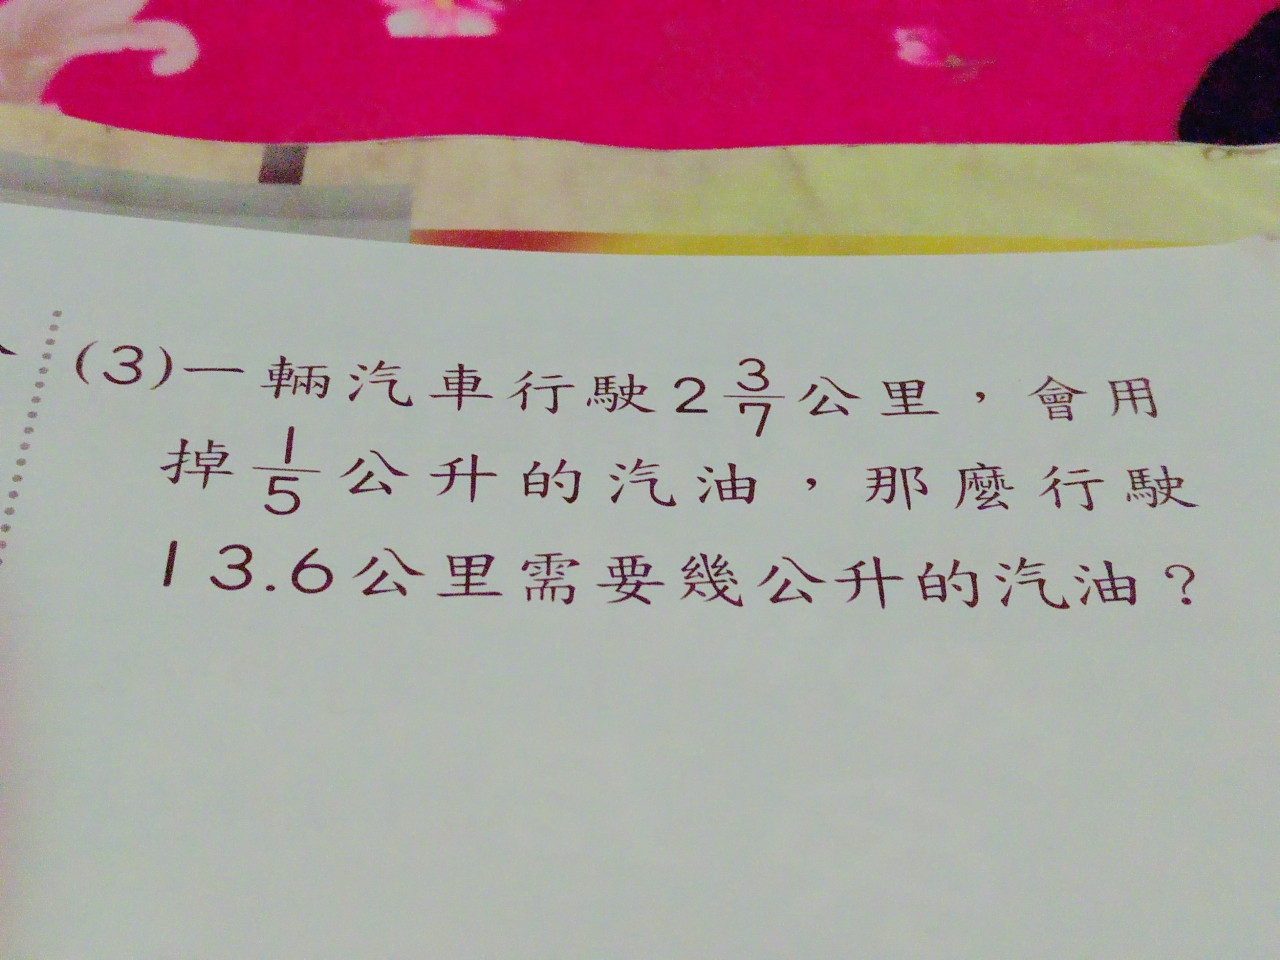 (3)一輛汽車行駛2 3/7公里，會用
掉1/5公升的汽油，那麼行駛
13.6公里需要幾公升的汽油？